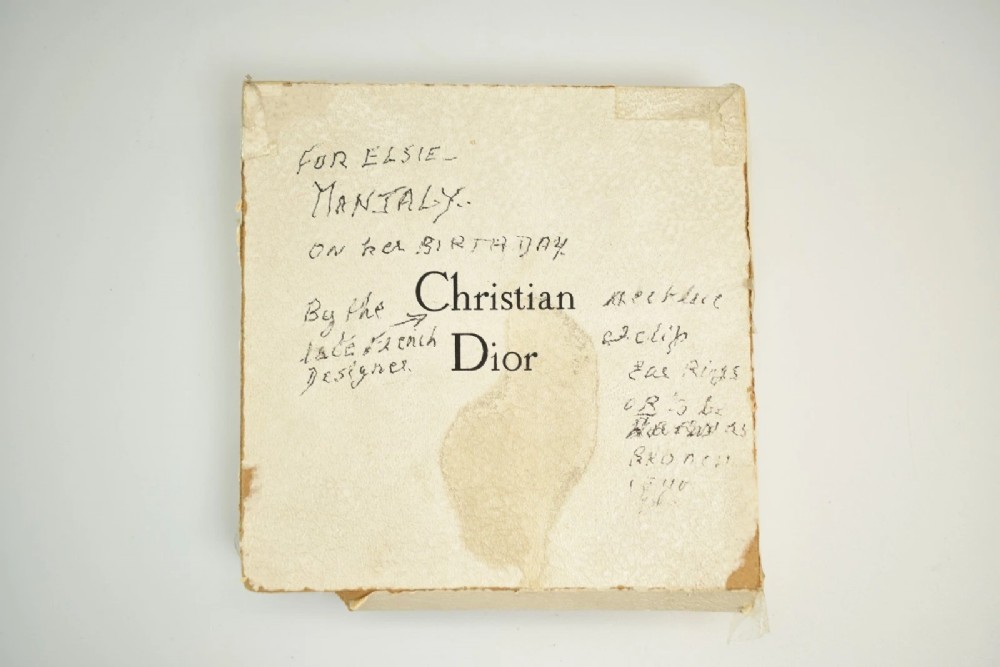 FOR ELSIE
MANTALY
ON her BIRTHDAY
By the
late French
Designer
Christian
Dior
necklace
clip
Ear Rings
OR